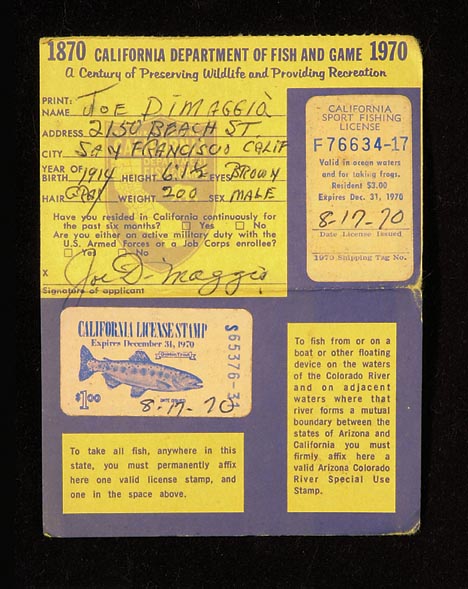 1870 CALIFORNIA DEPARTMENT OF FISH AND GAME 1970
A Century of Preserving Wildlife and Providing Recreation
PRINT:
NAME JOE DIMAGGIO
ADDRESS 2150 BEACH ST
CITY SAN FRANCISCO CALIF
YEAR OF
BIRTH 1914 HEIGHT 6:1½ EYES BROWN
HAIR GRAY WEIGHT 200 SEX MALE
Have you resided in California continuously for
the past six months? Yes No
Are you either on active military duty with the
U.S. Armed Forces or a Job Corps enrollee?
Yes No
X Joe DiMaggio
Signature of applicant
CALIFORNIA
SPORT FISHING
LICENSE
F76634-17
Valid in ocean waters
and for taking frogs.
Resident $3.00
Expires Dec. 31, 1970
8-17-70
Date License Issued
1970 Shipping Tag No.
CALIFORNIA LICENSE STAMP
Expires December 31, 1970
Golden Trout
$1.00
8-17-70
To take all fish, anywhere in this
state, you must permanently affix
here one valid license stamp, and
one in the space above.
To fish from or on a
boat or other floating
device on the waters
of the Colorado River
and on adjacent
waters where that
river forms a mutual
boundary between the
states of Arizona and
California you must
firmly affix here a
valid Arizona Colorado
River Special Use
Stamp.